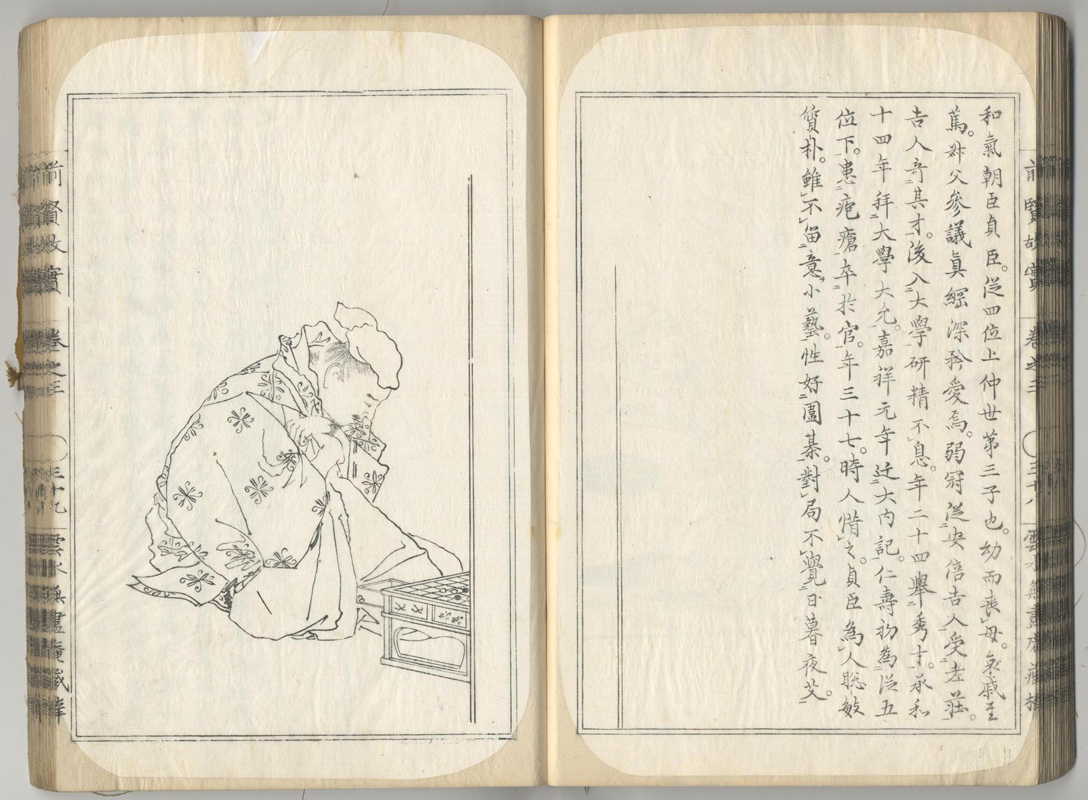 和氣朝臣貞臣。従四位上仲世第三子也。幼而喪母。哀戚至
篤。叔父參議眞綱深矜愛焉。弱冠従安倍吉人受老莊。
吉人奇其才。後入大學研精不息。年二十四舉秀才。承和
十四年拜大學大允。嘉祥元年迁大内記。仁壽初為従五
位下。患疱瘡卒於官。年三十七。時人惜之。貞臣為人聡敏
質朴。雖不畄意小藝。性好圍棊。對局不覺日暮夜艾。
前賢故實 卷之三 三十八
前賢故實 卷之三 三十九 雲水無盡庵藏梓